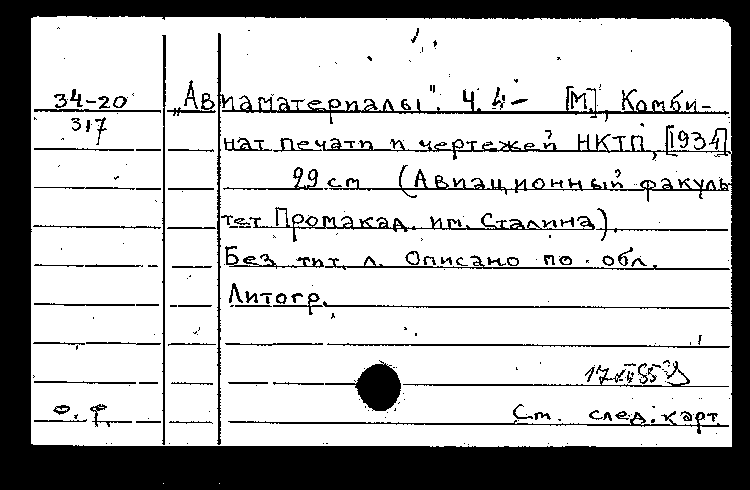 34-20 „Авиаматериалы". Ч. 4- [М.], Комби-
317
нат печати и чертежей НКТП, [1934]
29 см (Авиационный факуль
тет Промакад. им. Сталина).
Без тит. л. Описано по обл.
Литогр.
о. ф. См. след. карт.